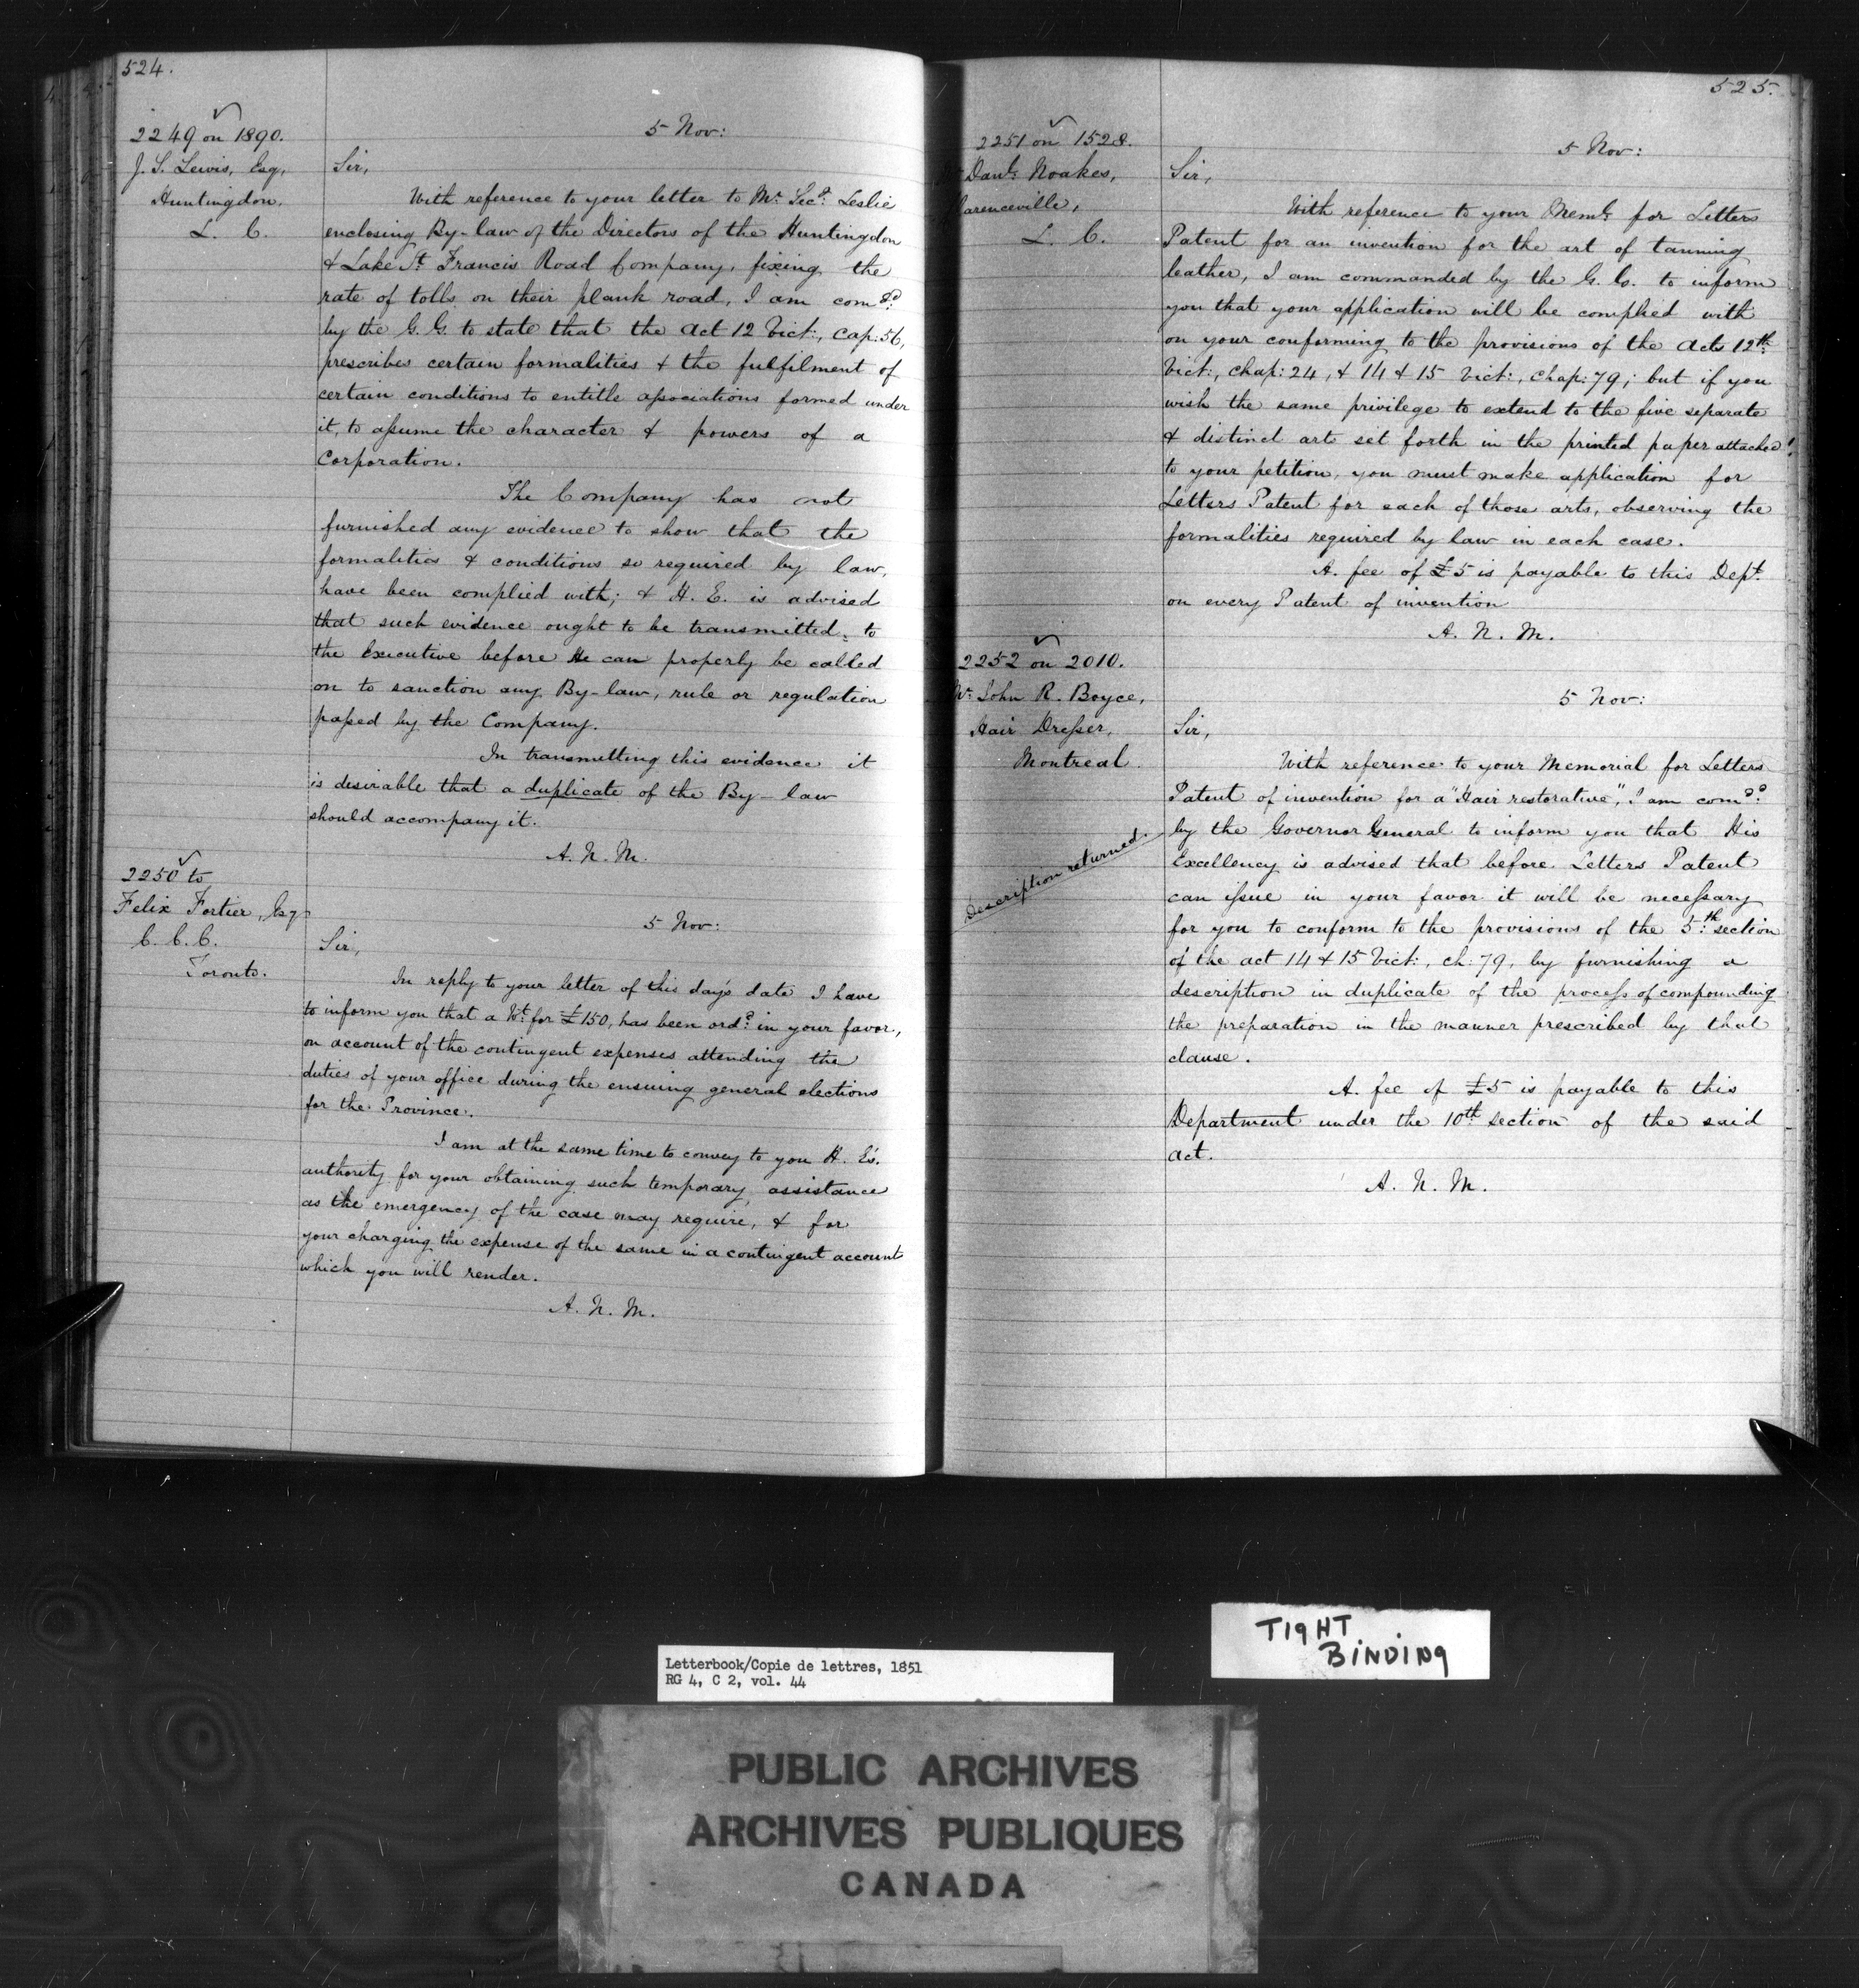 524.
2249 on 1890.
J. S. Lewis, Esq,
Huntingdon,
L. C.
5 Nov:
Sir,
With reference to your letter to Mr. Secy. Leslie
enclosing By-law of the Directors of the Huntingdon
& Lake St. Francis Road Company, fixing the
rate of tolls on their plank road, I am comdd.
by the G. G. to state that the Act 12 Vict:, Cap: 56,
prescribes certain formalities & the fulfilment of
certain conditions to entitle associations formed under
it, to assume the character & powers of a
Corporation.
The Company has not
furnished any evidence to show that the
formalities & conditions so required by law,
have been complied with; & H. E. is advised
that such evidence ought to be transmitted to
the Executive before He can properly be called
on to sanction any By-law, rule or regulation
passed by the Company.
In transmitting this evidence it
is desirable that a duplicate of the By-law
should accompany it.
A. N. M.
2250 to
Felix Fortier, Esq
C. C. C.
Toronto.
5 Nov:
Sir,
In reply to your letter of this day's date I have
to inform you that a Wt. for £150, has been ordd. in your favor,
on account of the contingent expenses attending the
duties of your office during the ensuing general elections
for the Province.
I am at the same time to convey to you H. E's.
authority for your obtaining such temporary assistance
as the emergency of the case may require, & for
your charging the expense of the same in a contingent account
which you will render.
A. N. M.
525.
2251 on 1528.
Danl. Noakes,
larenceville,
L. C.
5 Nov:
Sir,
With reference to your Meml. for Letters
Patent for an invention for the art of tanning
leather, I am commanded by the G. G. to inform
you that your application will be complied with
on your conforming to the provisions of the Acts 12th.
Vict:, Chap: 24, & 14 & 15 Vict:, Chap: 79; but if you
wish the same privilege to extend to the five separate
& distinct art set forth in the printed paper attached
to your petition, you must make application for
Letters Patent for each of those arts, observing the
formalities required by law in each case.
A. fee of £5 is payable to this Dept.
on every Patent of invention
A. N. M.
2252 on 2010.
Mr. John R. Boyce,
Hair Dresser,
Montreal.
Description returned.
5 Nov:
Sir,
With reference to your Memorial for Letters
Patent of invention for a "Hair restorative", I am comdd.
by the Governor General to inform you that His
Excellency is advised that before Letters Patent
can issue in your favor it will be necessary
for you to conform to the provisions of the 5th. section
of the act 14 & 15 Vict:, ch: 79, by furnishing a
description in duplicate of the process of compounding
the preparation in the manner prescribed by that
clause.
A. fee of £5 is payable to this
Department under the 10th section of the said
act.
A. N. M.
TIGHT
BINDING
Letterbook/Copie de lettres, 1851
RG 4, C 2, vol. 44
PUBLIC ARCHIVES
ARCHIVES PUBLIQUES
CANADA